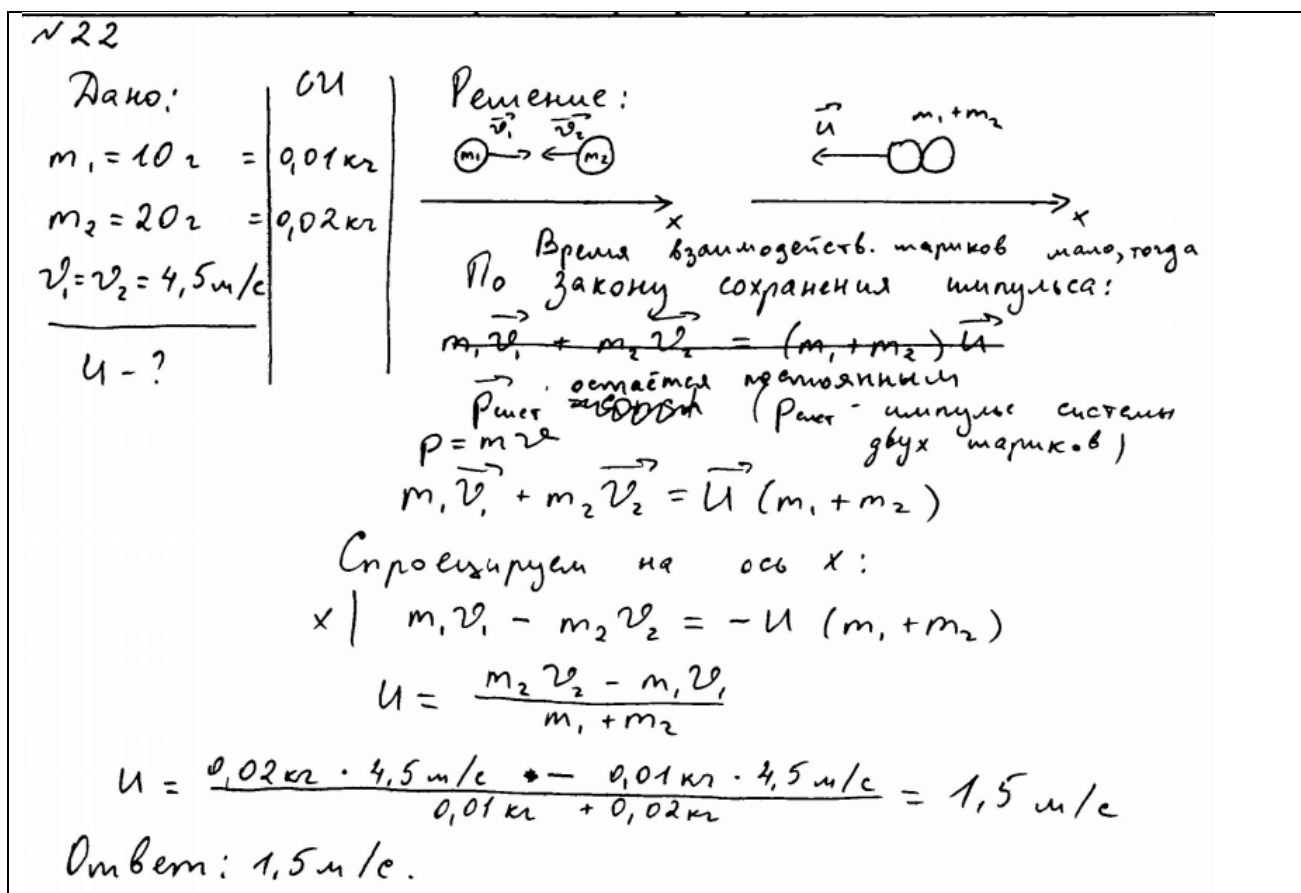 №22
Дано: СИ Решение:
m₁ = 10 г = 0,01 кг
m₂ = 20 г = 0,02 кг
v₁ = v₂ = 4,5 м/с
u - ?
v₁ v₂
m₁ m₂
x
u m₁ + m₂
x
Время взаимодейств. шариков мало, тогда
По закону сохранения импульса:
m₁v₁ + m₂v₂ = (m₁ + m₂) u
Pсист остаётся постоянным
(Pсист - импульс системы
двух шариков)
p = mv
m₁v₁ + m₂v₂ = u (m₁ + m₂)
Спроецируем на ось x:
x | m₁v₁ - m₂v₂ = -u (m₁ + m₂)
u = (m₂v₂ - m₁v₁) / (m₁ + m₂)
u = (0,02 кг · 4,5 м/с - 0,01 кг · 4,5 м/с) / (0,01 кг + 0,02 кг) = 1,5 м/с
Ответ: 1,5 м/с.